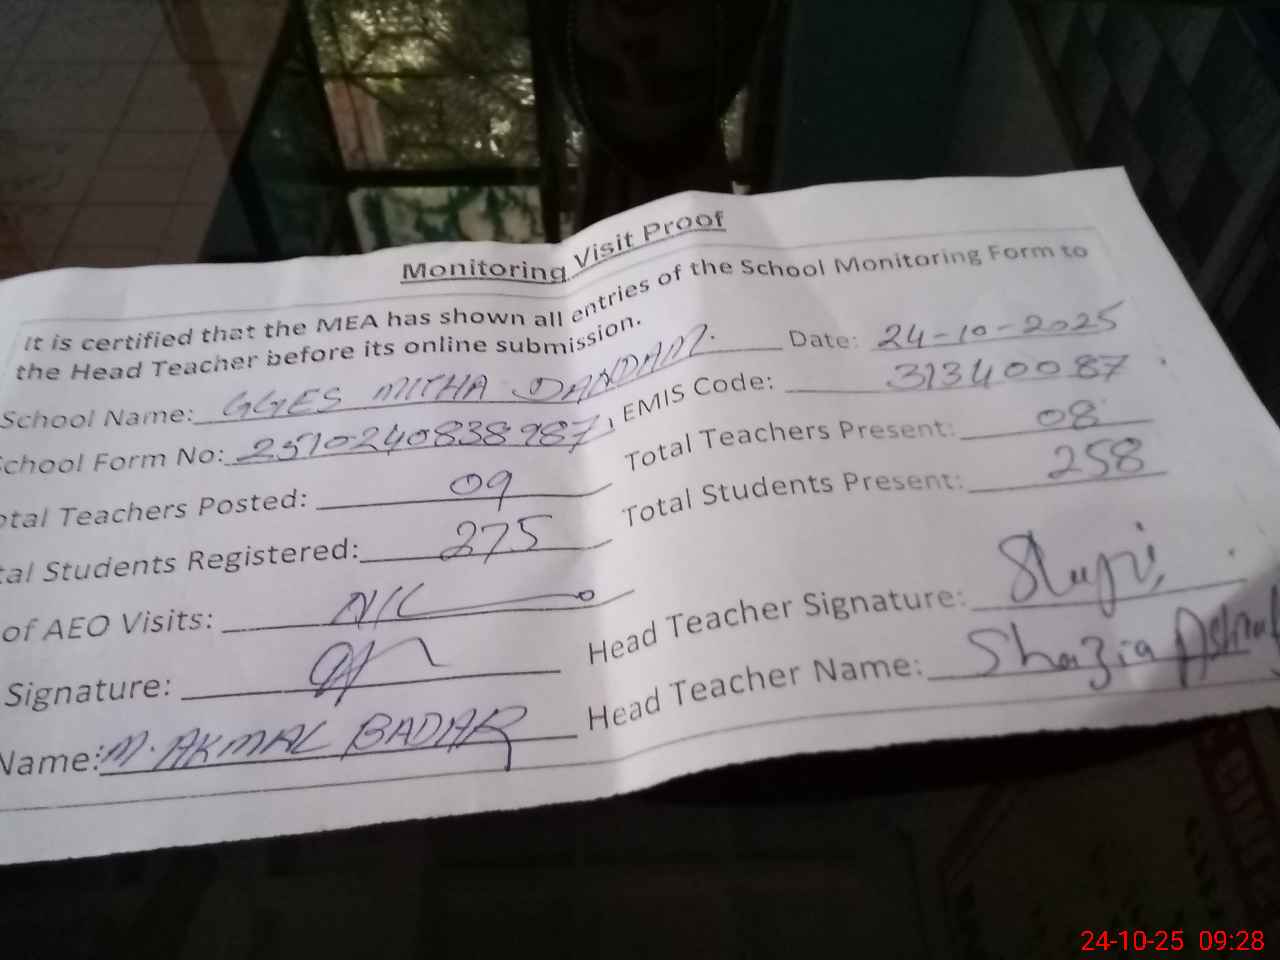 Monitoring Visit Proof
It is certified that the MEA has shown all entries of the School Monitoring Form to
the Head Teacher before its online submission.
Date: 24-10-2025
School Name: GGES MITHA DANDAM.
EMIS Code: 31340087
School Form No: 2510240838987
Total Teachers Present: 08
otal Teachers Posted: 09
Total Students Present: 258
tal Students Registered: 275
of AEO Visits: NIL
Head Teacher Signature:
Signature:
Head Teacher Name: Shazia Ashraf
Name: M. AKMAL BADAR
24-10-25 09:28